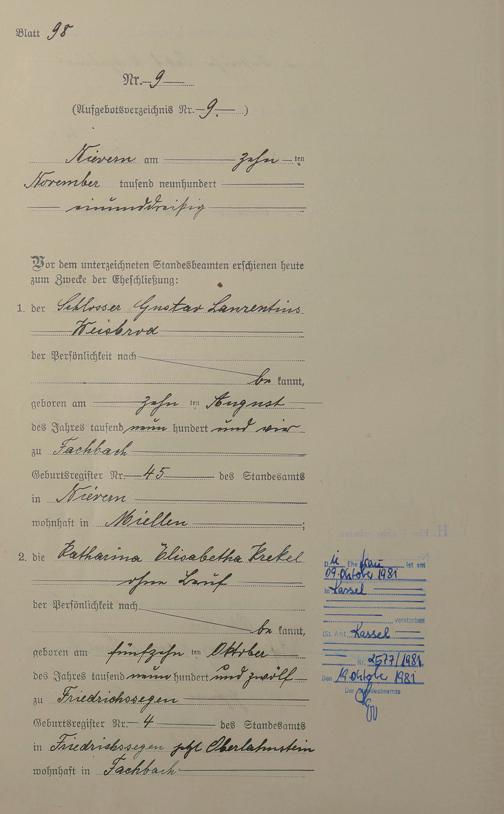 Blatt 98
Nr. 9
(Aufgebotsverzeichnis Nr. 9.)
Nievern am zehn ten
November tausend neunhundert
einunddreißig
Vor dem unterzeichneten Standesbeamten erschienen heute
zum Zwecke der Eheschließung:
1. der Schlosser Gustav Laurentius
Weisbrod
der Persönlichkeit nach
be kannt,
geboren am zehn ten August
des Jahres tausend neun hundert und vier
zu Fachbach
Geburtsregister Nr. 45 des Standesamts
in Nievern
wohnhaft in Miellen ;
2. die Katharina Elisabetha Krekel
ohne Beruf
der Persönlichkeit nach
be kannt,
geboren am fünfzehn ten Oktober
des Jahres tausend neun hundert und zwölf
zu Friedrichssegen
Geburtsregister Nr. 4 des Standesamts
in Friedrichssegen jetzt Oberlahnstein
wohnhaft in Fachbach
Die Ehefrau ist am
09. Oktober 1981
in Kassel
verstorben
(St. Amt Kassel
Nr. 2577/1981
Den 19 Oktober 1981
Der Standesbeamte